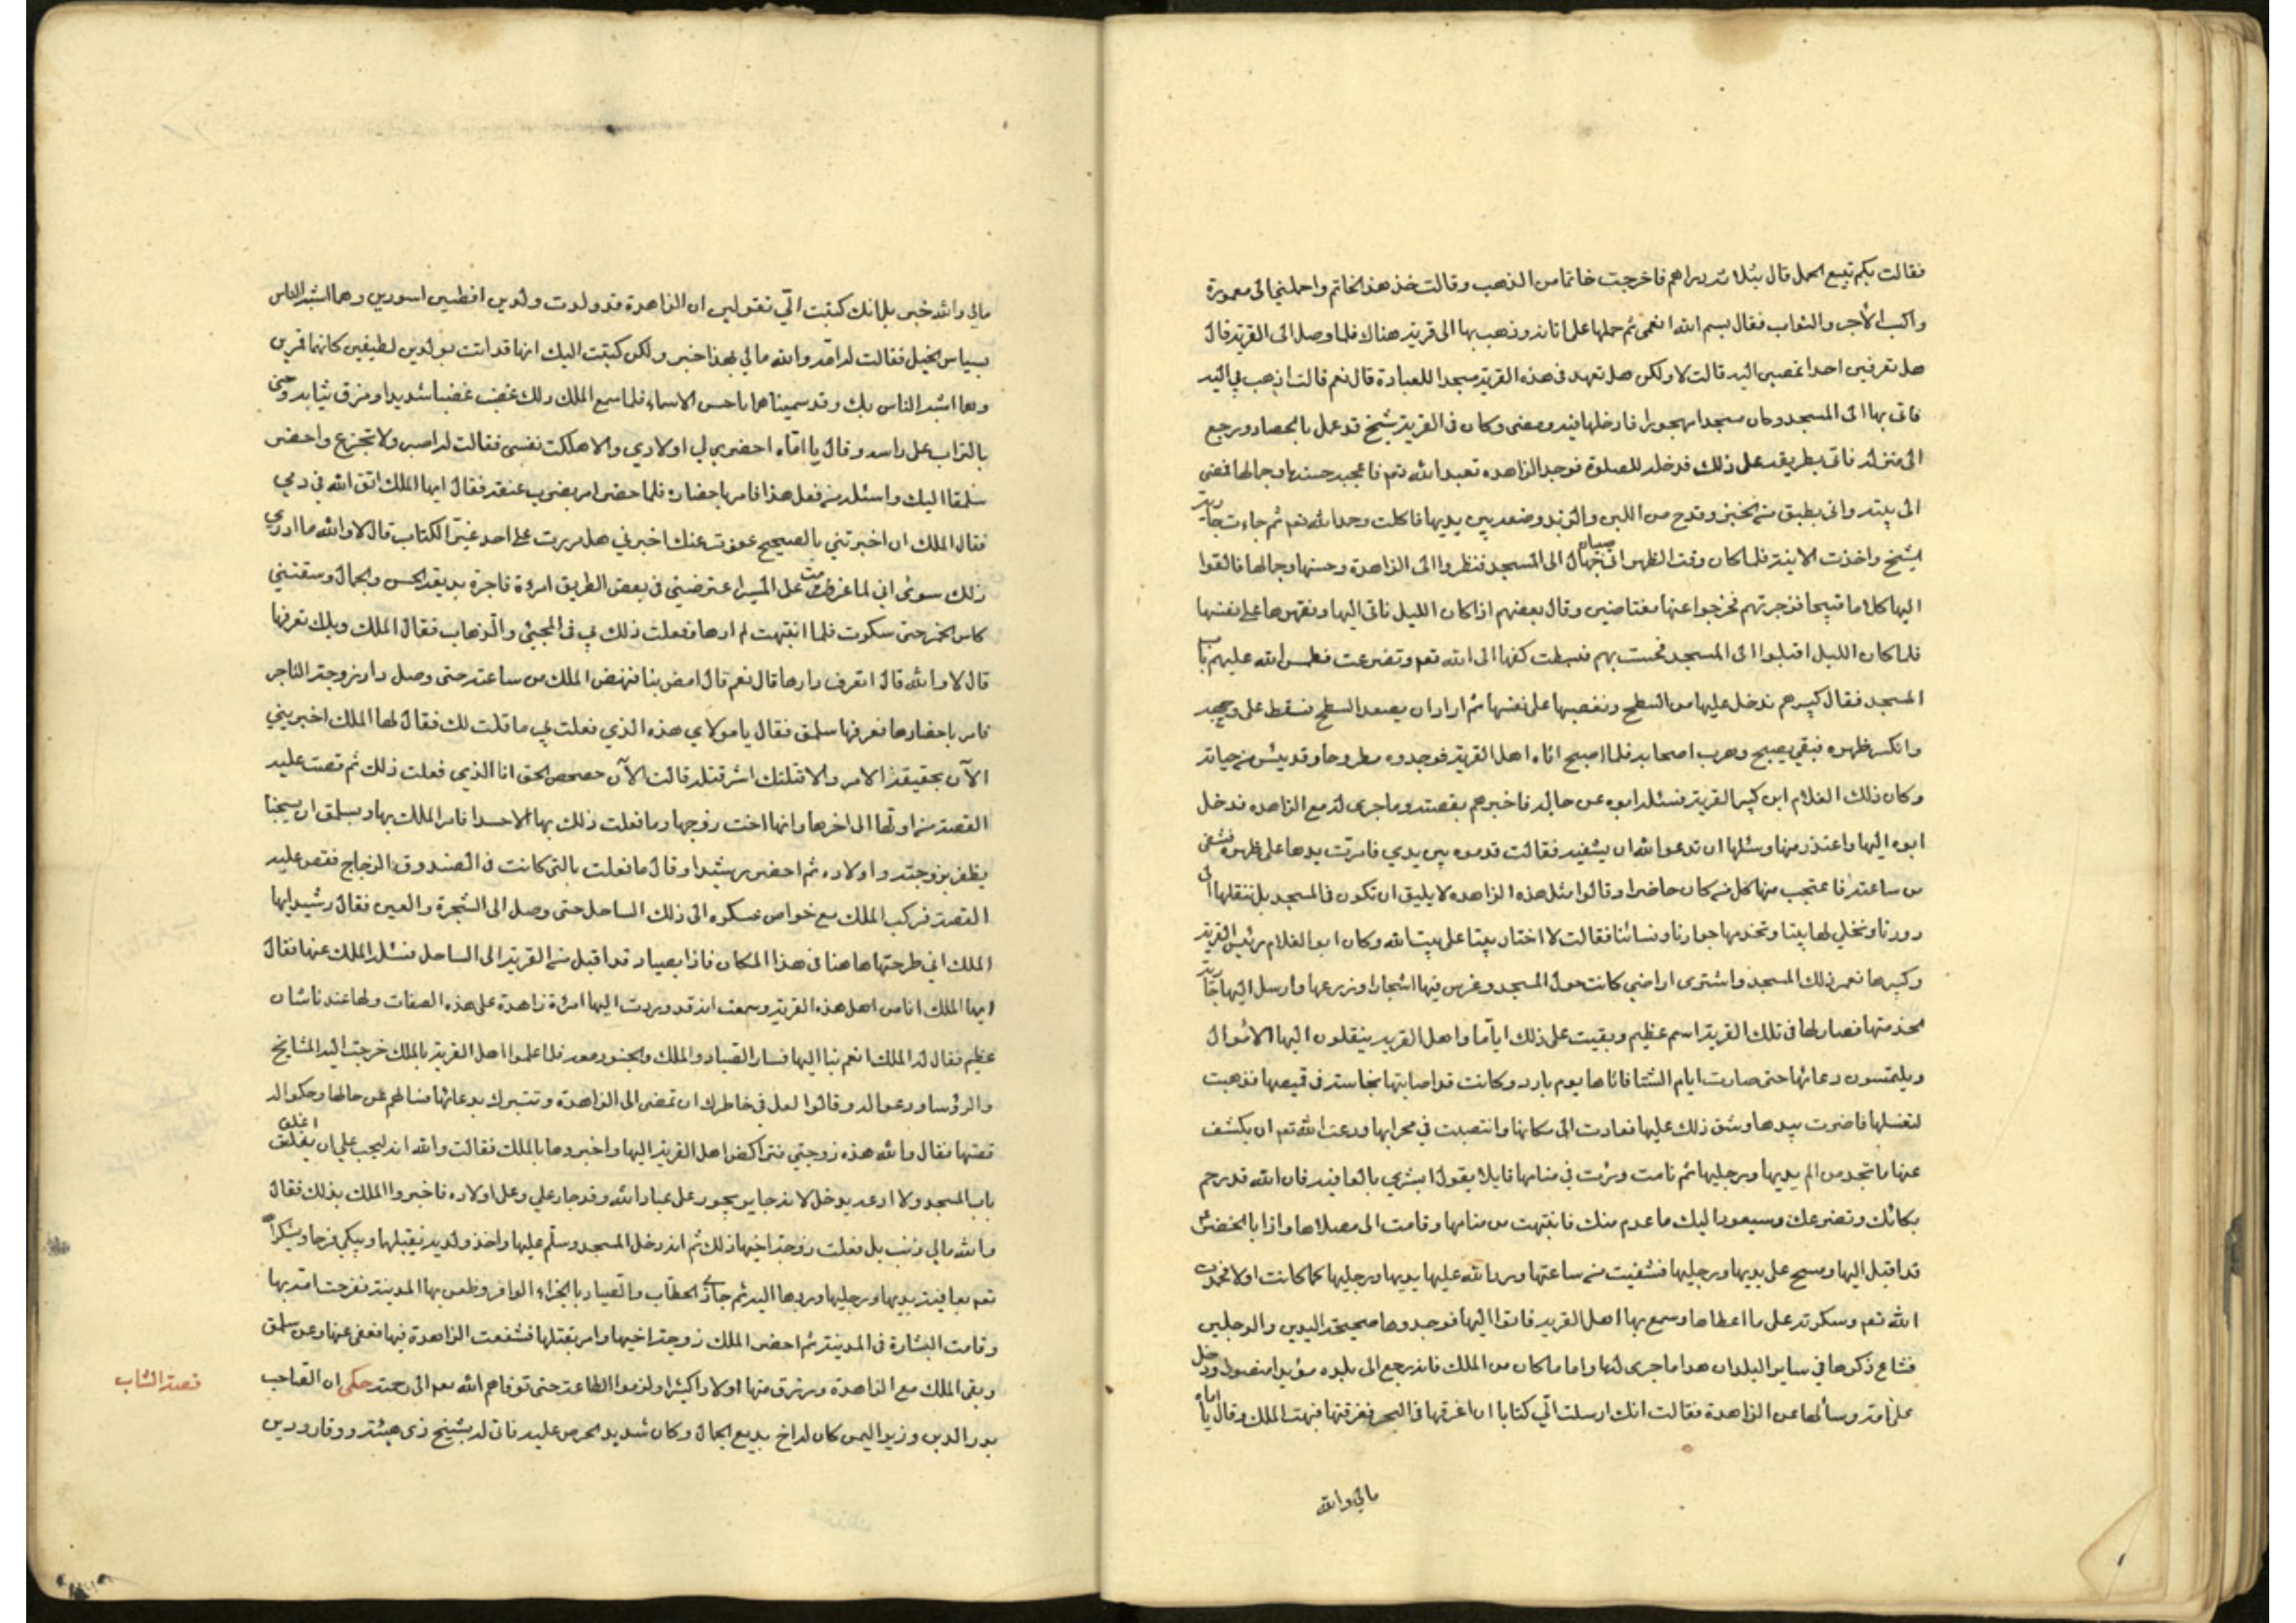 فقالت بكم تبيع الحمل قال بثلاثة دراهم فاخرجت خاتما من الذهب وقالت خذ هذا الخاتم واحملني الى معمورة
واكسب الأجر والثواب فقال بسم الله انعمى ثم حملها على اتانه وذهب بها الى قرية هناك فلما وصل الى القرية قال
هل تعرفين احدا تمضين اليه قالت لا ولكن هل تعهد فى هذه القرية مسجدا للعبادة قال نعم قالت اذهب بي اليه
فاتى بها الى المسجد وكان مسجدا مهجورا فادخلها فيه ومضى وكان فى القرية شيخ قد عمل بالحصاد ورجع
الى منزله فاتى بطريقه على ذلك فدخله للصلوة فوجد الزاهده تعبد الله تعم فاعجبه حسنها وجمالها فمضى
الى بيته واتى بطبق من الخبز وقدح من اللبن والزبد وضعه بين يديها فاكلت وحمدالله تعم ثم جاءت جارية
الشيخ واخذت الانية فلما كان وقت الظهر اتى جهال صبيان الى المسجد فنظروا الى الزاهدة وحسنها وجمالها فالقوا
اليها كلاما قبيحا فزجرتهم فخرجوا عنها مغتاضين وقال بعضهم اذا كان الليل ناتى اليها ونقهرها على نفسها
فلما كان الليل اقبلوا الى المسجد فحست بهم فبسطت كفها الى الله تعم وتضرعت فطمس الله عليهم باب
المسجد فقال كبيرهم ندخل عليها من السطح ونغصبها على نفسها ثم اراد ان يصعد السطح فسقط على وجهه
وانكسر ظهره فبقي يصيح وهرب اصحابه فلما اصبح اتاه اهل القرية فوجدوه مطروحا وقد يئس من حياته
وكان ذلك الغلام ابن كبير القرية فسئله ابوه عن حاله فاخبرهم بقصته وما جرى له مع الزاهده فدخل
ابوه اليها واعتذر منها وسئلها ان تدعو الله ان يشفيه فقالت قدموه بين يدي فامرت يدها على ظهره فشفى
من ساعته فاعتجب منها كل من كان حاضرا وقالوا مثل هذه الزاهده لا يليق ان تكون فى المسجد بل ننقلها الى
دورنا ونخلي لها بيتا وتخدمها جوارنا ونسائنا فقالت لا اختار بيتا على بيت الله وكان ابو الغلام رئيس القرية
وكبيرها فعمر ذلك المسجد واشترى اراضي كانت حول المسجد وغرس فيها اشجارا وزرعها وارسل اليها جارية
لخدمتها فصار لها فى تلك القرية اسم عظيم وبقيت على ذلك اياما واهل القرية ينقلون اليها الاموال
ويلتمسون دعائها حتى صارت ايام الشتا فاتاها يوم بارد وكانت قد اصابتها نجاسة فى قميصها فذهبت
لتغسلها فاضرت بيدها وشق ذلك عليها فعادت الى مكانها وانتصبت في محرابها ودعت الله تعم ان يكشف
عنها ما تجد من الم يديها ورجليها ثم نامت ورئت في منامها قايلا يقول ابشري بالعافية فان الله قد رحم
بكائك وتضرعك وسيعود اليك ما عدم منك فانتبهت من منامها وقامت الى مصلاها واذا بالخضر
قد اقبل اليها ومسح على يديها ورجليها فشفيت من ساعتها ورد الله عليها يديها ورجليها كما كانت اولا فحمدت
الله تعم وشكرته على ما اعطاها وسمع بها اهل القرية فاتوا اليها فوجدوها صحيحة اليدين والرجلين
فشاع ذكرها في ساير البلدان هذا ما جرى لها واما ما كان من الملك فانه رجع الى بلده مؤيدا منصورا ودخل
على امه وسألها عن الزاهدة فقالت انك ارسلت الي كتابا ان اغرقها فى البحر فغرقتها فبهت الملك وقال يا اماه
مالي والله
مالي والله خبر بل انك كتبت الي تقولين ان الزاهدة قد ولدت ولدين افطسين اسودين وهما اشبه الناس
بسياس الخيل فقالت له امه والله مالي بهذا خبر ولكن كتبت اليك انها قد اتت بولدين لطيفين كانهما قمرين
وهما اشبه الناس بك وقد سميناهما باحسن الاسماء فلما سمع الملك ذلك غضب غضبا شديدا ومزق ثيابه وحثى
بالتراب على راسه وقال يا اماه احضري لي اولادي والا هلكت نفسي فقالت له اصبر ولا تجزع واحضر
سلمقا اليك واسئله من فعل هذا فامر باحضاره فلما حضر امر بضرب عنقه فقال ايها الملك اتق الله في دمي
فقال الملك ان اخبرتني بالصحيح عفوت عنك اخبرني هل مررت على احد غير الكتاب قال لا والله ما ادري
ذلك سوى اني لما عزمت على المسير اعترضتني فى بعض الطريق امرءة فاجرة بديعة الحسن والجمال وسقتني
كاس الخمر حتى سكرت فلما انتبهت لم ارها وفعلت ذلك بي فى المجيئ والذهاب فقال الملك ويلك تعرفها
قال لا والله قال اتعرف دارها قال نعم قال امض بنا فنهض الملك من ساعته حتى وصل دار زوجة التاجر
فامر باحضارها فعرفها سلمق فقال يا مولاي هذه الذي فعلت بي ما قلت لك فقال لها الملك اخبريني
الآن بحقيقة الامر والا قتلتك اشر قتلة قالت الآن حصحص الحق انا الذي فعلت ذلك ثم قصت عليه
القصة من اولها الى اخرها وانها اخت زوجها وما فعلت ذلك بها الا حسدا فامر الملك بها وبسلمق ان يسجنا
يظفر بزوجته واولاده ثم احضر رشيدا وقال ما فعلت بالتي كانت فى الصندوق الزجاج فقص عليه
القصة فركب الملك مع خواص عسكره الى ذلك الساحل حتى وصل الى الشجرة والعين فقال رشيد ايها
الملك اني طرحتها هاهنا فى هذا المكان فاذا بصياد قد اقبل من القرية الى الساحل فسئله الملك عنها فقال
ايها الملك انا من اهل هذه القرية وسمعت انه قد وردت اليها امرئة زاهدة على هذه الصفات ولها عندنا شان
عظيم فقال له الملك انعم بنا اليها فسار الصياد والملك والجنود معه فلما علموا اهل القرية بالملك خرجت اليه المشايخ
والرؤسا ودعوا له وقالوا لعل في خاطرك ان تمضى الى الزاهدة وتتبرك بدعائها فسالهم عن حالها وحكوا له
قصتها فقال والله هذه زوجتي فتراكض اهل القرية اليها واخبروها بالملك فقالت والله انه ليجب علي ان اغلق
باب المسجد ولا ادعه يدخل لانه جاير يجور على عباد الله وقد جار علي وعلى اولاده فاخبروا الملك بذلك فقال
والله مالي ذنب بل فعلت زوجة اخيها ذلك ثم انه دخل المسجد وسلم عليها واخذ ولديه يقبلهما ويبكي فرحا ويشكر الله
تعم بعافية يديها ورجليها وردها اليه ثم جازى الحطاب والصياد بالجزاء الوافر وظعن بها المدينة ففرحت امه بها
وقامت البشارة فى المدينة ثم احضر الملك زوجة اخيها وامر بقتلها فشفعت الزاهدة فيها فعفى عنها وعن سلمق
وبقى الملك مع الزاهدة ورزق منها اولادا كثيرا ولزموا الطاعة حتى توفاهم الله تعم الى رحمته حكى ان الصاحب
قصة الشاب
بدر الدين وزير اليمن كان له اخ بديع الجمال وكان شديد الحرص عليه فاتى له بشيخ ذى هيئة ووقار ودين